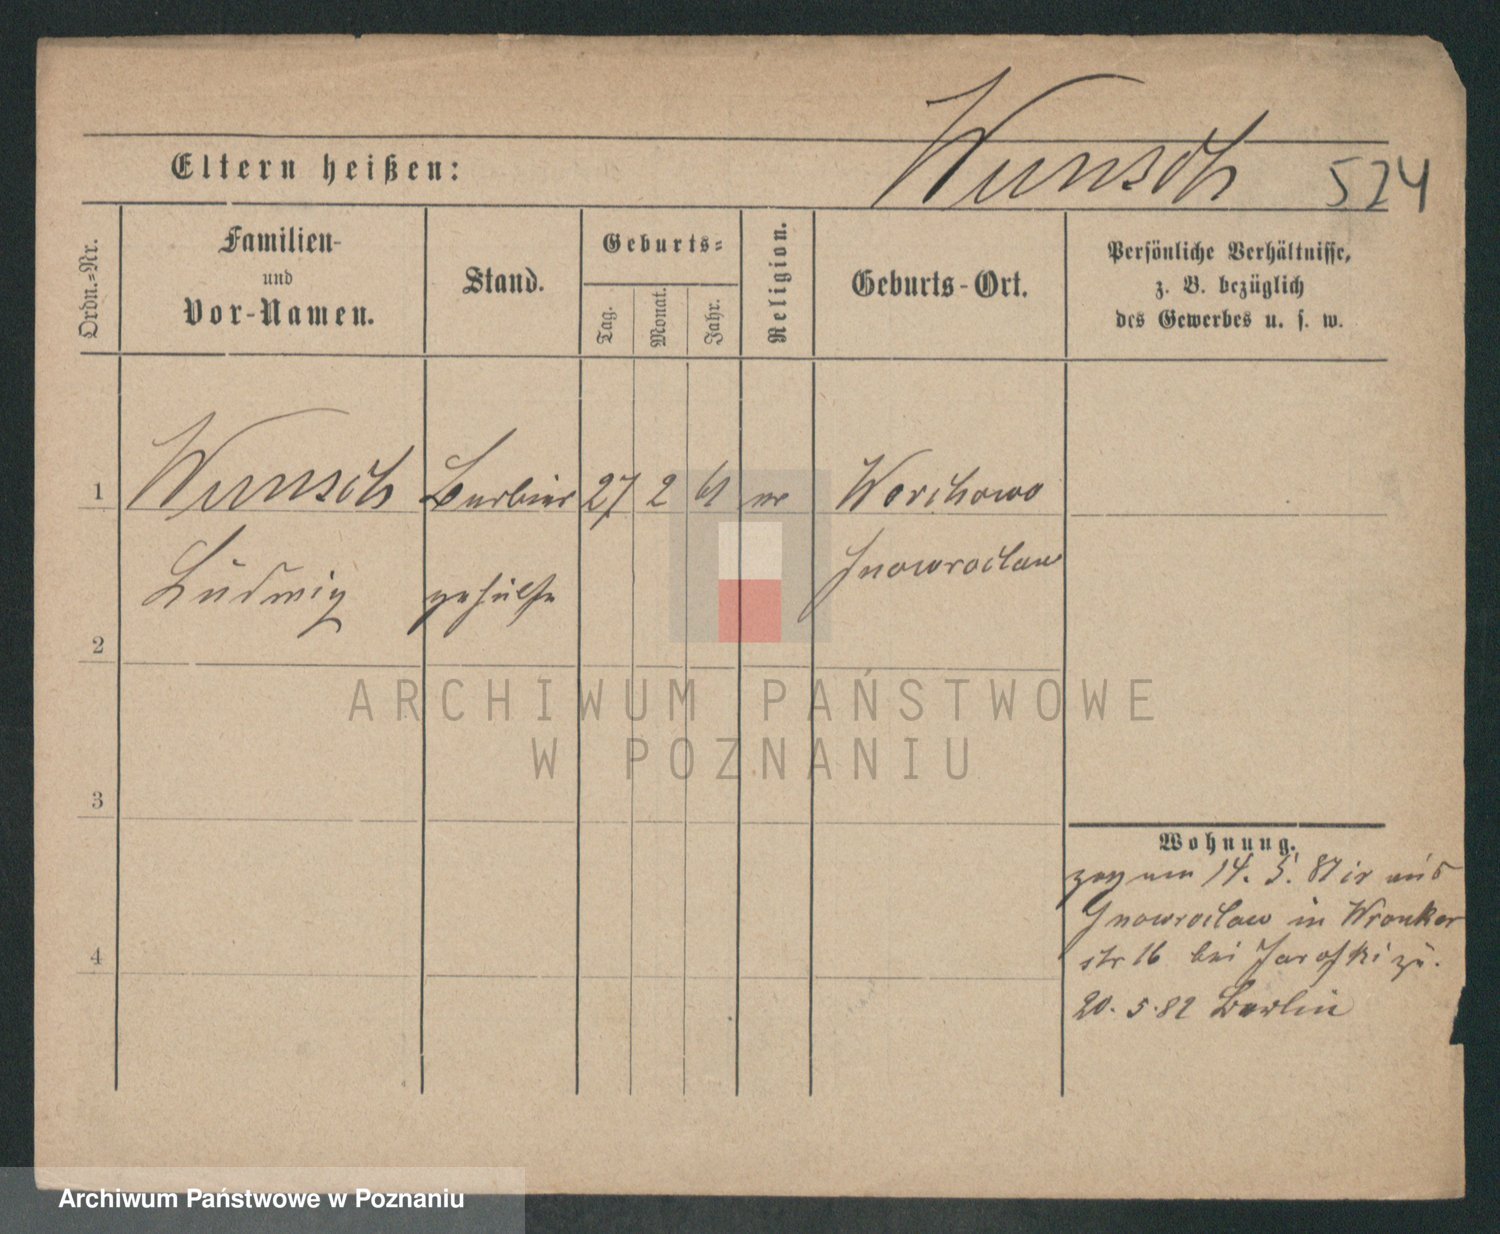 Wunsch 524
Eltern heißen:
Ordn.-Nr.
Familien-
und
Vor-Namen.
Stand.
Geburts-
Tag.
Monat.
Jahr.
Religion.
Geburts-Ort.
Persönliche Verhältnisse,
z. B. bezüglich
des Gewerbes u. s. w.
1 Wunsch Barbier 27 2 61 Worchowo
Ludwig gehülfe Inowroclaw
2
3
4
Wohnung.
zog am 14. 5. 81 aus
Inowroclaw in Wronker
str 16 bei Jaroski zu.
20. 5. 82 Berlin
ARCHIWUM PAŃSTWOWE
W POZNANIU
Archiwum Państwowe w Poznaniu